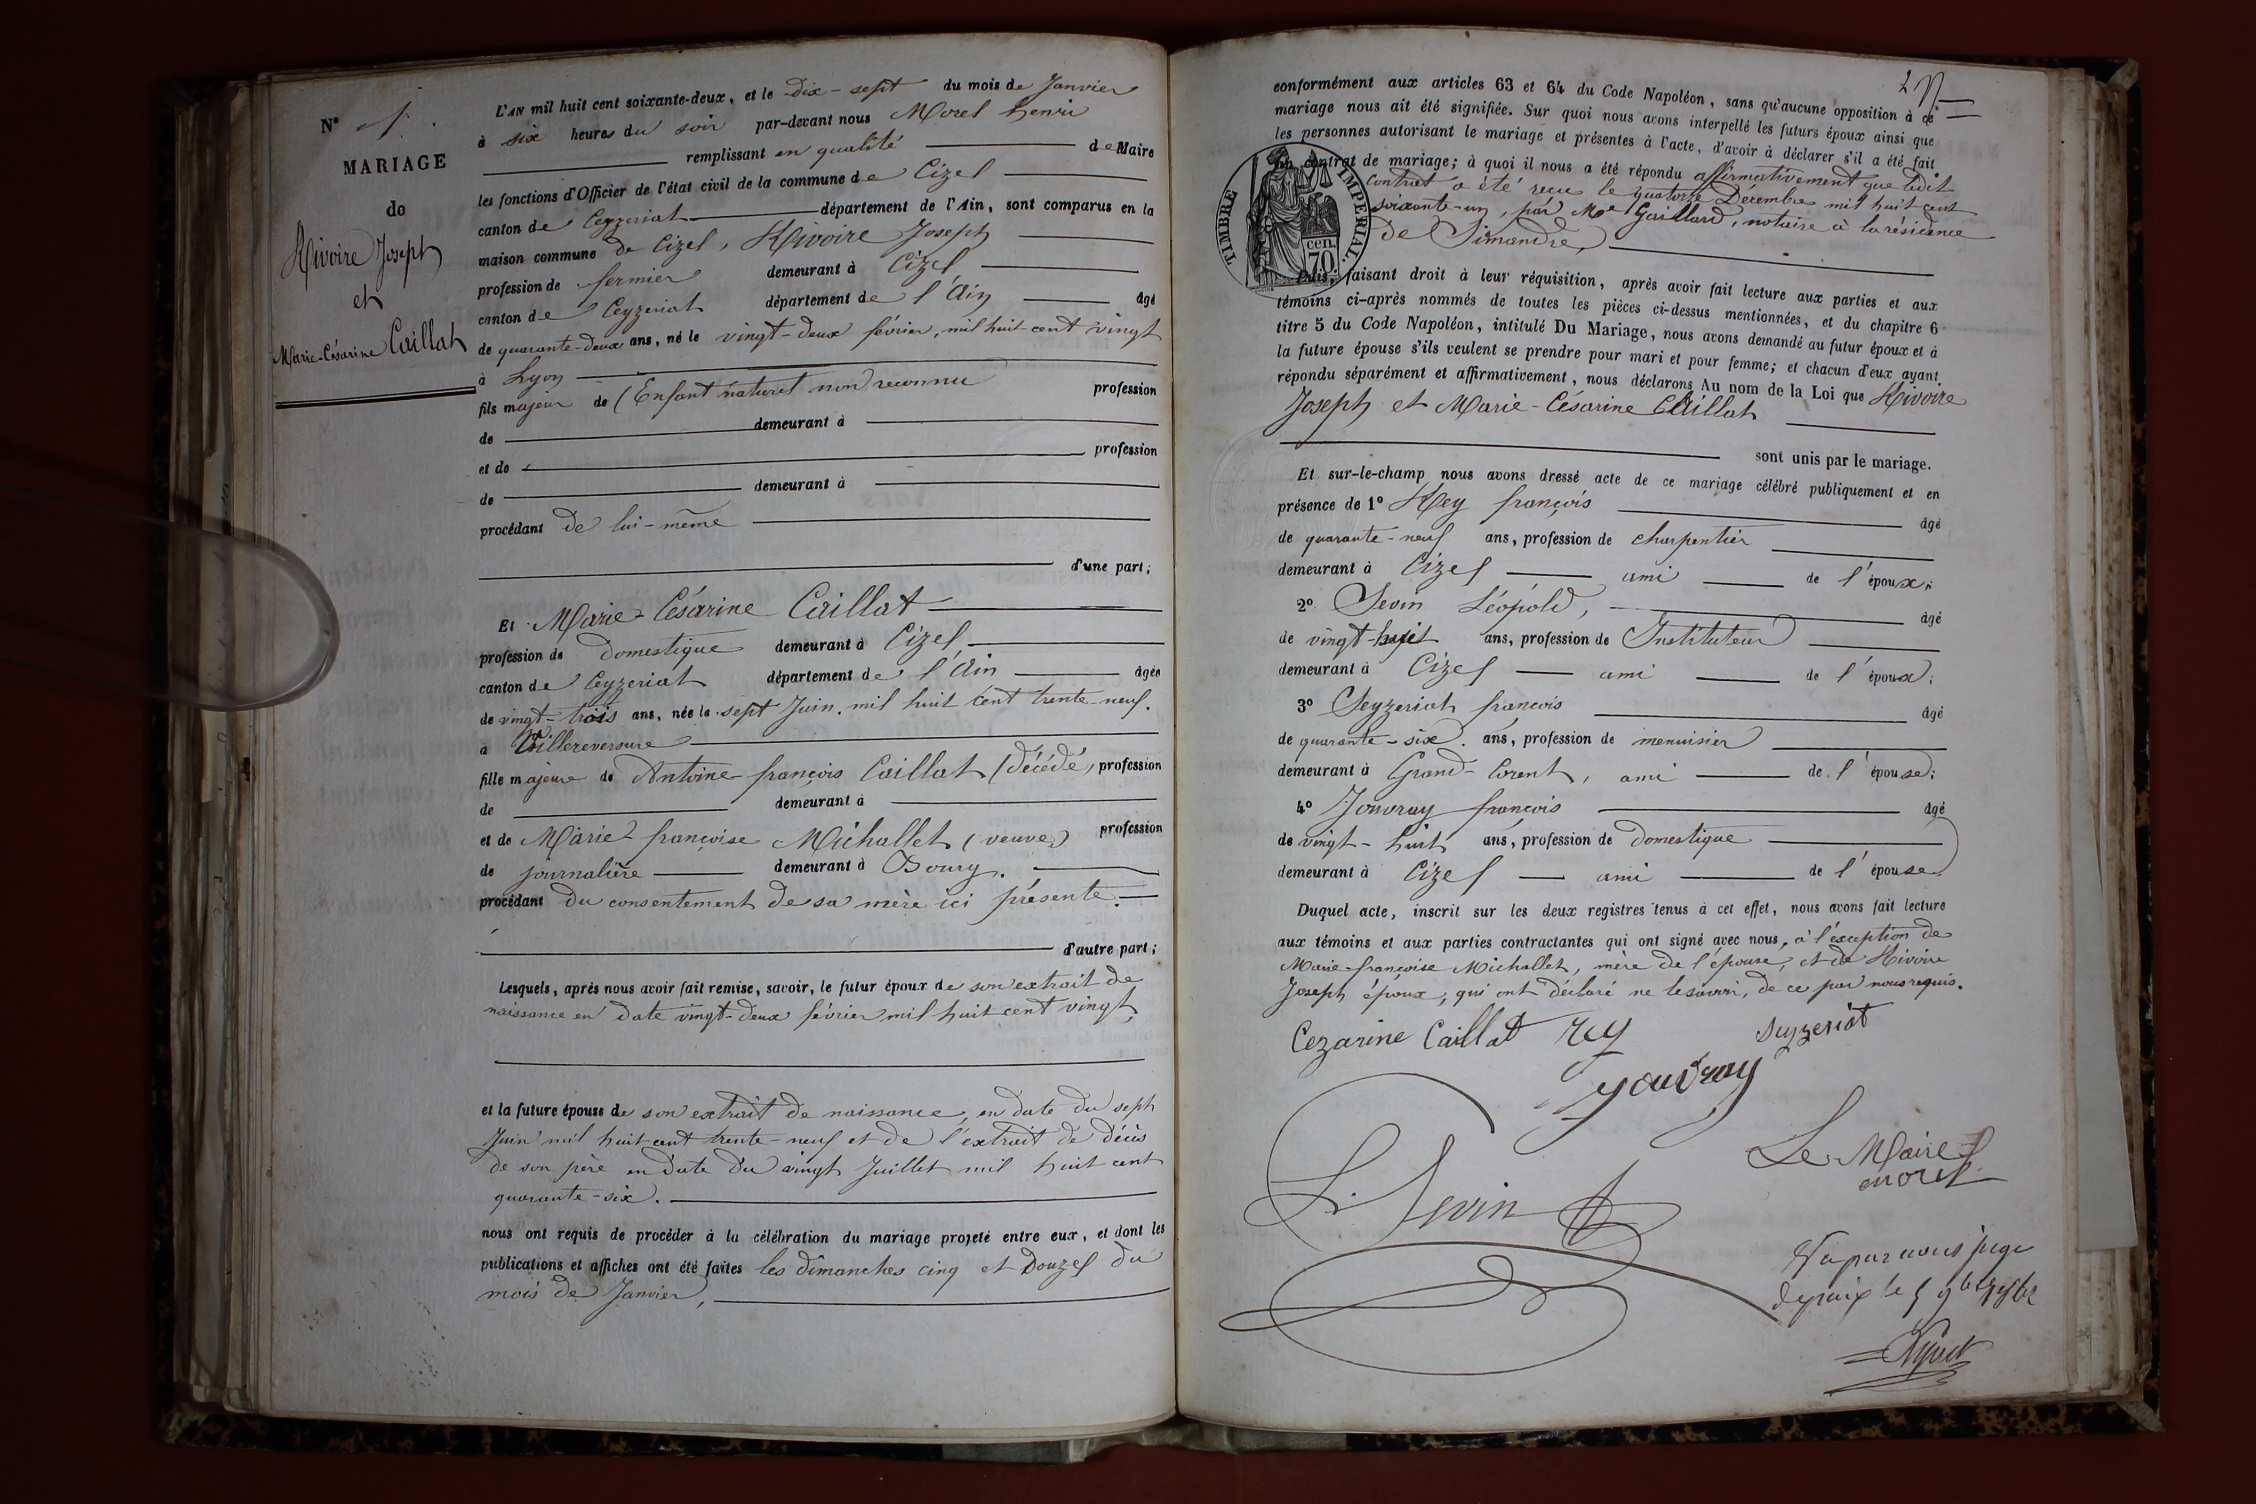 N° 1.
MARIAGE
de
Rivoire Joseph
et
Marie-Césarine Caillat
L'AN mil huit cent soixante-deux, et le dix-sept du mois de Janvier
à six heures du soir par-devant nous Morel henri
remplissant en qualité de Maire
les fonctions d'Officier de l'état civil de la commune de Cizel
canton de Ceyzeriat département de l'Ain, sont comparus en la
maison commune de Cizel, Rivoire Joseph
profession de fermier demeurant à Cizel
canton de Ceyzeriat département de l'Ain âgé
de quarante-deux ans, né le vingt-deux février, mil huit cent vingt
à Lyon
fils majeur de (Enfant naturel non reconnu profession
de demeurant à
et de profession
de demeurant à
procédant de lui-même
d'une part;
Et Marie-Césarine Caillat
profession de Domestique demeurant à Cizel
canton de Ceyzeriat département de l'Ain âgée
de vingt-trois ans, née le sept Juin, mil huit cent trente-neuf.
a Villereversure
fille majeure de Antoine françois Caillat (décédé, profession
de demeurant à
et de Marie françoise Michallet (veuve) profession
de journalière demeurant à Bourg.
procédant du consentement de sa mère ici présente.
d'autre part;
Lesquels, après nous avoir fait remise, savoir, le futur époux de son extrait de
naissance en date vingt-deux février mil huit cent vingt,
et la future épouse de son extrait de naissance, en date du sept
Juin mil huit cent trente-neuf et de l'extrait de décès
de son père en date du vingt Juillet mil huit cent
quarante-six.
nous ont requis de procéder à la célébration du mariage projeté entre eux, et dont les
publications et affiches ont été faites les dimanches cinq et Douze du
mois de Janvier,
2
conformément aux articles 63 et 64 du Code Napoléon, sans qu'aucune opposition à ce
mariage nous ait été signifiée. Sur quoi nous avons interpellé les futurs époux ainsi que
les personnes autorisant le mariage et présentes à l'acte, d'avoir à déclarer s'il a été fait
un contrat de mariage; à quoi il nous a été répondu affirmativement que ledit
contrat a été reçu le quatorze Décembre mil huit cent
soixante-un, par Me Gaillard, notaire à la résidence
de Simandre,
TIMBRE IMPERIAL.
70 cen.
Puis, faisant droit à leur réquisition, après avoir fait lecture aux parties et aux
témoins ci-après nommés de toutes les pièces ci-dessus mentionnées, et du chapitre 6
titre 5 du Code Napoléon, intitulé Du Mariage, nous avons demandé au futur époux et à
la future épouse s'ils veulent se prendre pour mari et pour femme; et chacun d'eux ayant
répondu séparément et affirmativement, nous déclarons Au nom de la Loi que Rivoire
Joseph et Marie-Césarine Caillat
sont unis par le mariage.
Et sur-le-champ nous avons dressé acte de ce mariage célébré publiquement et en
présence de 1° Rey françois âgé
de quarante-neuf ans, profession de charpentier
demeurant à Cizel ami de l'époux;
2° Sevin Léopold, âgé
de vingt-huit ans, profession de Instituteur
demeurant à Cizel ami de l'époux;
3° Seyzeriat françois âgé
de quarante-six. ans, profession de menuisier
demeurant à Grand-Corent, ami de l'épouse;
4° Jouvray françois âgé
de vingt-huit ans, profession de Domestique
demeurant à Cizel ami de l'épouse
Duquel acte, inscrit sur les deux registres tenus à cet effet, nous avons fait lecture
aux témoins et aux parties contractantes qui ont signé avec nous, à l'exception de
Marie-françoise Michallet, mère de l'épouse, et de Rivoire
Joseph époux, qui ont déclaré ne le savoir, de ce par nous requis.
Cezarine Caillat Rey Seyzeriat
Jouvray
Le Maire
morel
L. Sevin
Vu par nous juge
de paix le 5 9bre 1862